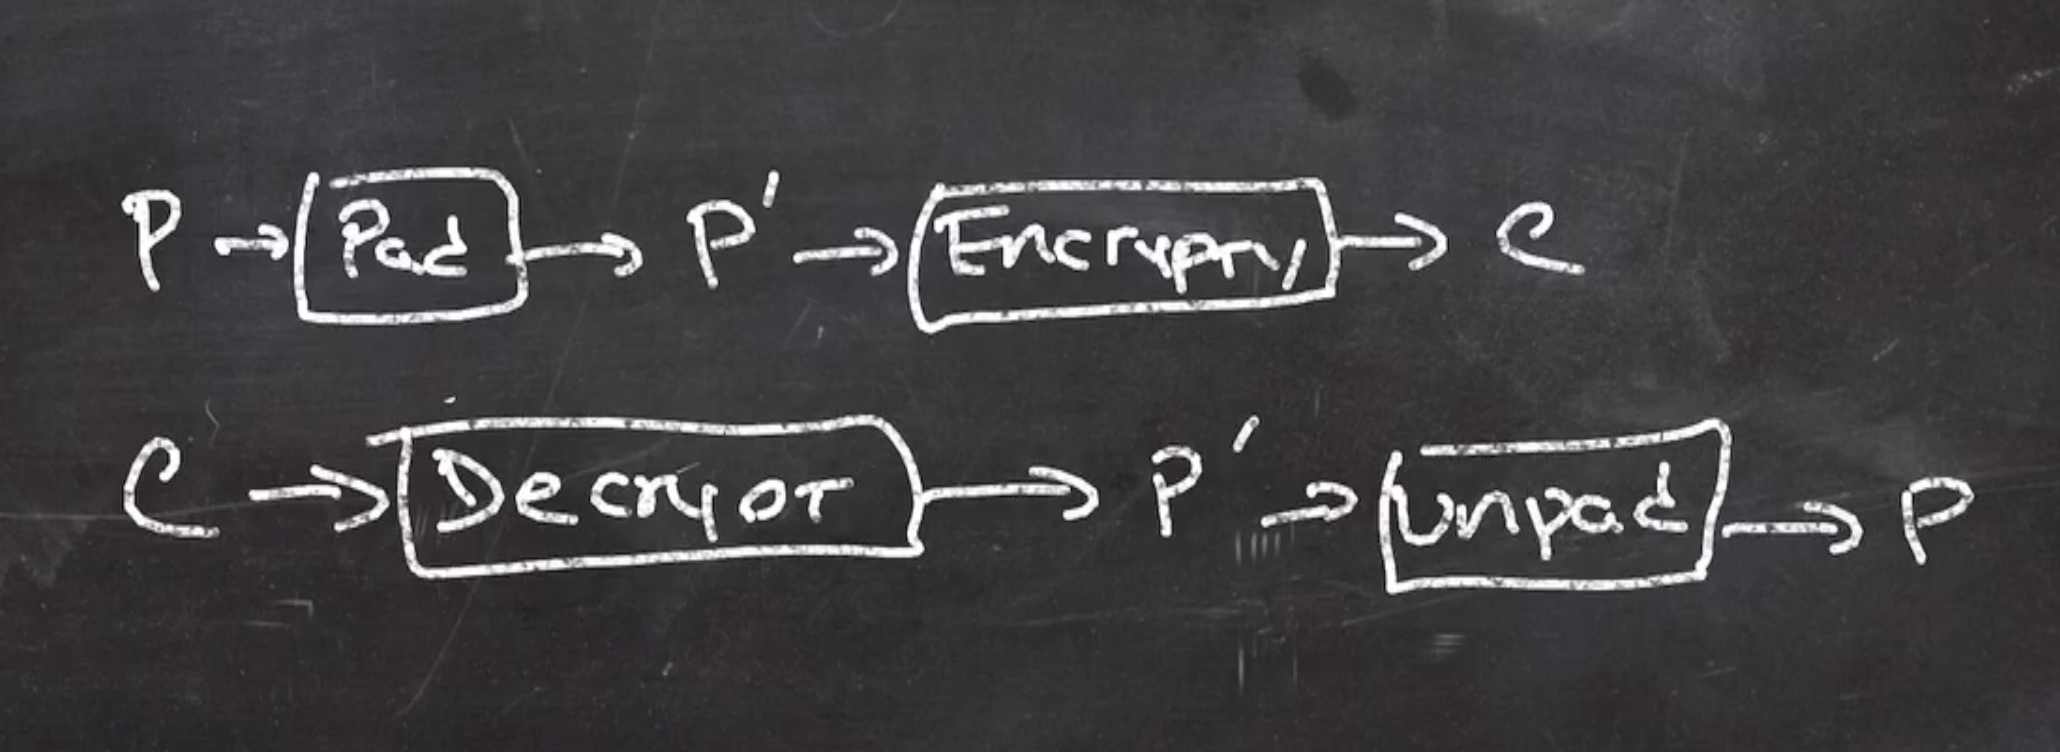 P → Pad → P' → Encrypt → C
C → Decrypt → P' → Unpad → P